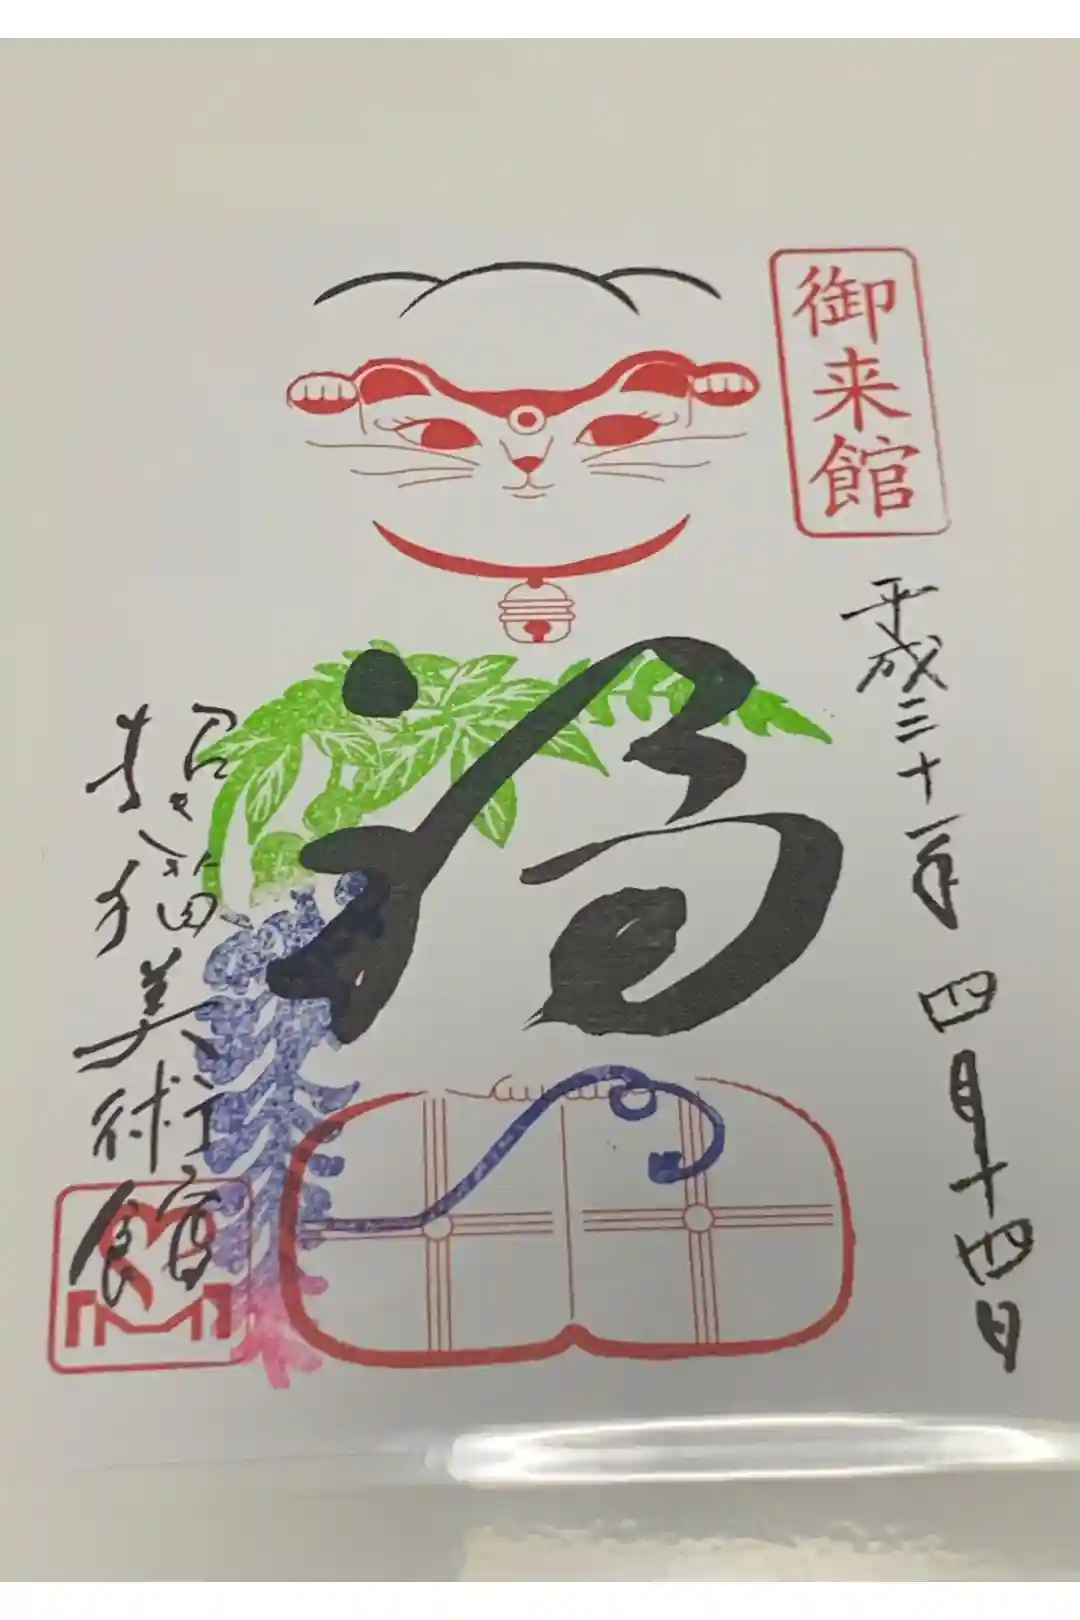 御来館
平成三十一年 四月十四日
福
招き猫美術館